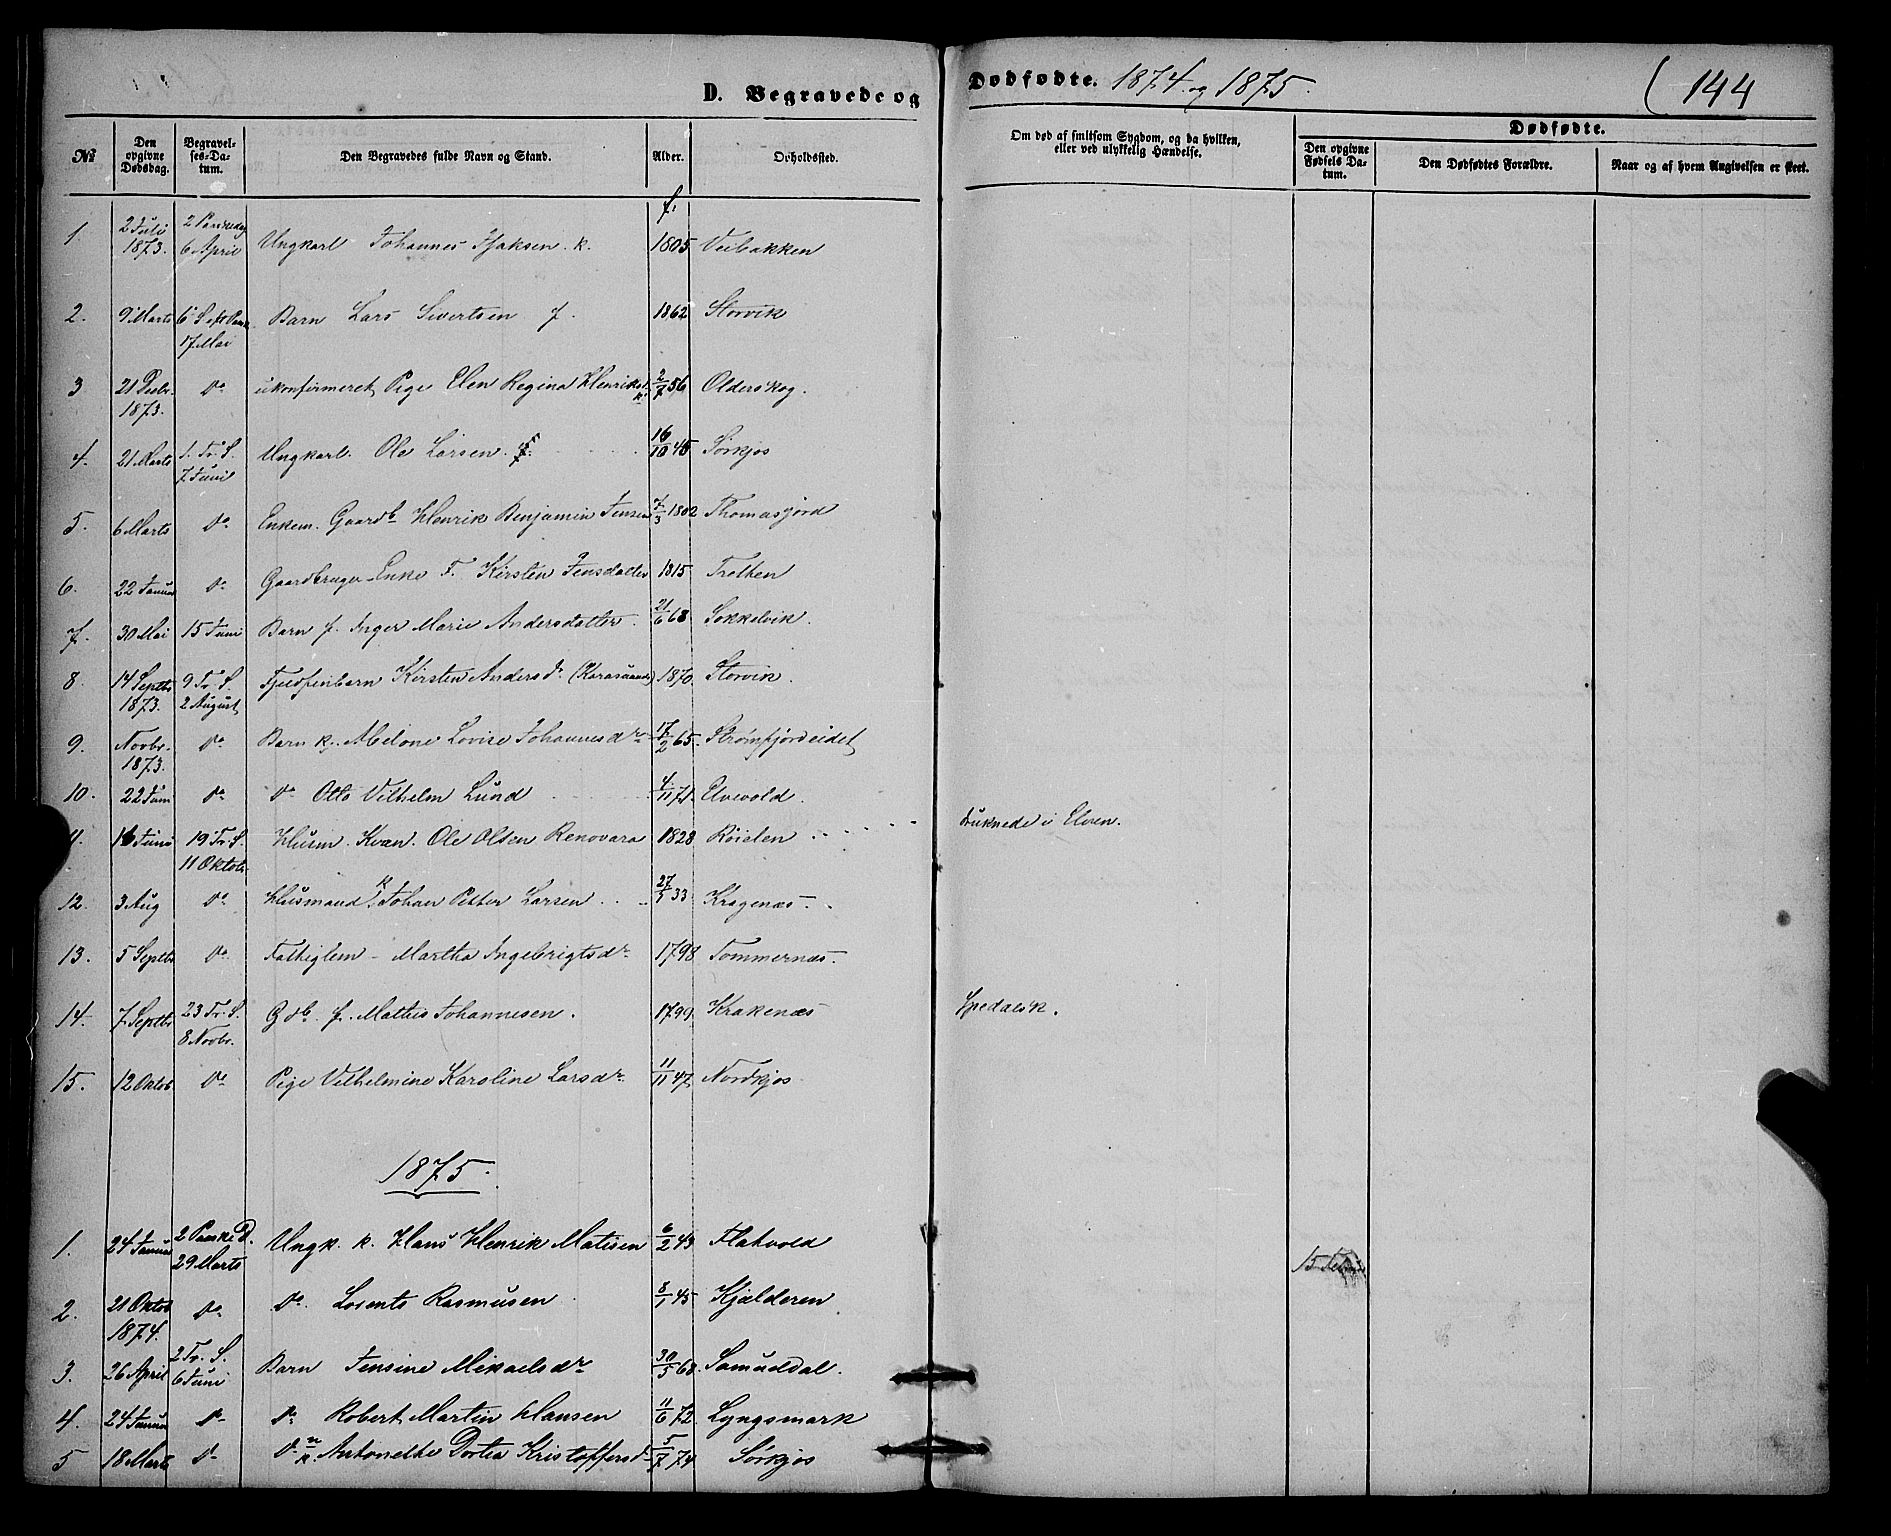 D. Begravede og
Dødfødte. 1874 og 1875.
( 144
No
Den opgivne Dødsdag.
Begravelses-Datum.
Den Begravedes fulde Navn og Stand.
Alder.
Opholdssted.
Om død af smitsom Sygdom, og da hvilken, eller ved ulykkelig Hændelse.
Dødfødte.
Den opgivne Fødsels Datum.
Den Dødfødtes Forældre.
Naar og af hvem Angivelsen er skeet.
f.
1. 2 Juli 1873. 2 Paaskedag 6 April Ungkarl Johannes Isaksen k. 1805 Veibakken
2. 9 Marts 17 Mai Barn Lars Sivertsen f. 1862 Storvik
3 21 Decbr. 1873. do ukonfirmeret Pige Elen Regina Henriksd. k. 2/7 56 Olderskog.
4. 21 Marts 1. Tr. S. 7 Juni Ungkarl. Ole Larsen f. 16/10 45 Sørkjos
5. 6 Marts do Enkem. Gaardb. Henrik Benjamin Jensen 7/3 1802 Thomasjord
6. 22 Januar do Gaardbruger Enke F. Kirsten Jensdatter 1815 Trollen
7. 30 Mai 15 Juni Barn f. Inger Marie Andersdatter. 21/6 68 Sokkelvik.
8. 14 Septbr 1873. 9 Tr. S. 2 August Fjeldfinbarn Kirsten Andersd. 1870. Storvik.
9. Novbr. 1873. do Barn k. Melone Lovise Johannesdr 17/2 65. Strømfjordeidet
10. 22 Juni do do Otto Vilhelm Lund 4/11 71. Elvevold.
11. 16 Juni 19 Tr. S. 11 Oktob. Husm. Kvæn. Ole Olsen Renovara 1828 Röielen druknede i Elven.
12. 3 Aug do Husmand k. Johan Petter Larsen 27/7 33 Kragenæs.
13. 5 Septbr do Fattiglem - Martha Ingebrigtsdr 1798 Tommernæs.
14. 7 Septbr 23 Tr. S. 8 Novbr. Gdb. f. Mathis Johannesen. 1799. Krakenæs Spedalsk.
15. 12 Oktob. do Pige Vilhelmine Karoline Larsdr 11/11 47 Nordkjos
1875.
1. 24 Januar 2 Paaske D. 29 Marts Ungk. k. Hans Henrik Matisen 6/2 43 Flatvold
2. 21 Oktob 1874. do do. Lorents Rasmusen 8/1 45 Kjælderen
3. 26 April 2 Tr. S. 6 Juni Barn Jensine Mikaelsdr 30/5 68. Samueldal.
4. 24 Januar do do Robert Martin Hansen 11/6 72. Lyngsmark
5 18 Marts do do Antonette Dortea Kristoffersd 5/7 74 Sørkjos